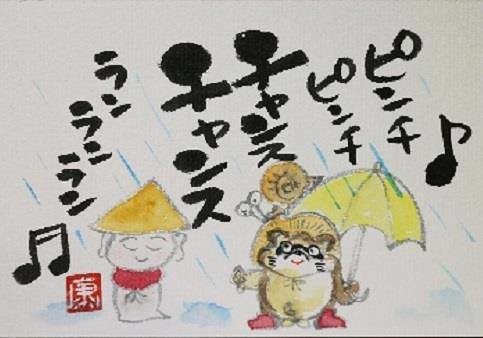 ピンチ
ピンチ
チャンス
チャンス
ラン
ランラン
ラン
康